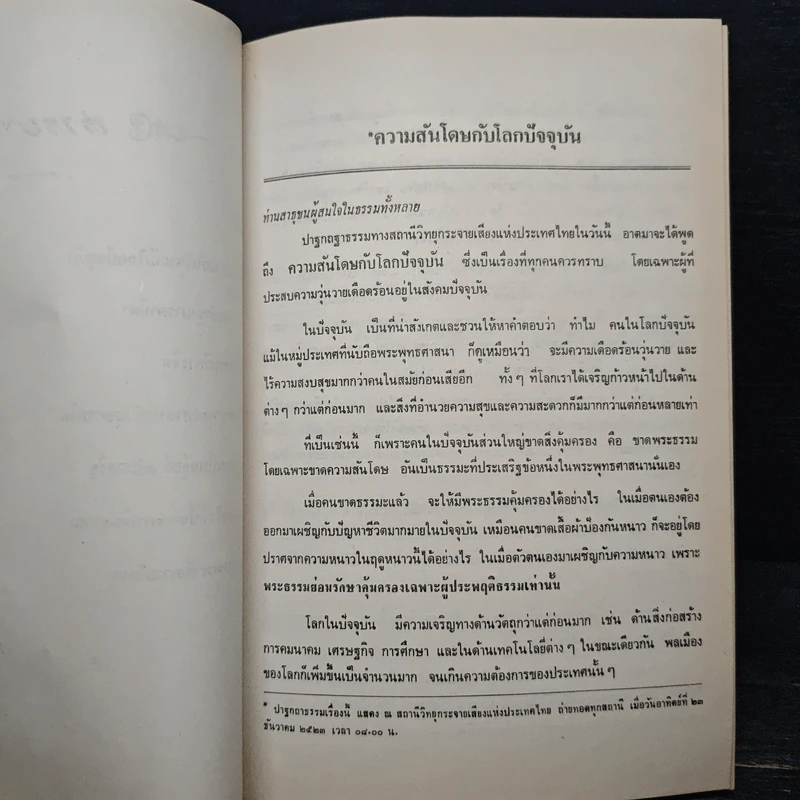 *ความสันโดษกับโลกปัจจุบัน
ท่านสาธุชนผู้สนใจในธรรมทั้งหลาย
ปาฐกถฐาธรรมทางสถานีวิทยุกระจายเสียงแห่งประเทศไทยในวันนี้ อาตมาจะได้พูด
ถึง ความสันโดษกับโลกปัจจุบัน ซึ่งเป็นเรื่องที่ทุกคนควรทราบ โดยเฉพาะผู้ที่
ประสบความวุ่นวายเดือดร้อนอยู่ในสังคมปัจจุบัน
ในปัจจุบัน เป็นที่น่าสังเกตและชวนให้หาคำตอบว่า ทำไม คนในโลกปัจจุบัน
แม้ในหมู่ประเทศที่นับถือพระพุทธศาสนา ก็ดูเหมือนว่า จะมีความเดือดร้อนวุ่นวาย และ
ไร้ความสงบสุขมากกว่าคนในสมัยก่อนเสียอีก ทั้ง ๆ ที่โลกเราได้เจริญก้าวหน้าไปในด้าน
ต่าง ๆ กว่าแต่ก่อนมาก และสิ่งที่อำนวยความสุขและความสะดวกก็มีมากกว่าแต่ก่อนหลายเท่า
ที่เป็นเช่นนี้ ก็เพราะคนในปัจจุบันส่วนใหญ่ขาดสิ่งคุ้มครอง คือ ขาดพระธรรม
โดยเฉพาะขาดความสันโดษ อันเป็นธรรมะที่ประเสริฐข้อหนึ่งในพระพุทธศาสนานั่นเอง
เมื่อคนขาดธรรมะแล้ว จะให้มีพระธรรมคุ้มครองได้อย่างไร ในเมื่อตนเองต้อง
ออกมาเผชิญกับปัญหาชีวิตมากมายในปัจจุบัน เหมือนคนขาดเสื้อผ้าป้องกันหนาว ก็จะอยู่โดย
ปราศจากความหนาวในฤดูหนาวนี้ได้อย่างไร ในเมื่อตัวตนเองมาเผชิญกับความหนาว เพราะ
พระธรรมย่อมรักษาคุ้มครองเฉพาะผู้ประพฤติธรรมเท่านั้น
โลกในปัจจุบัน มีความเจริญทางด้านวัตถุกว่าแต่ก่อนมาก เช่น ด้านสิ่งก่อสร้าง
การคมนาคม เศรษฐกิจ การศึกษา และในด้านเทคโนโลยี่ต่าง ๆ ในขณะเดียวกัน พลเมือง
ของโลกก็เพิ่มขึ้นเป็นจำนวนมาก จนเกินความต้องการของประเทศนั้น ๆ
* ปาฐกถาธรรมเรื่องนี้ แสดง ณ สถานีวิทยุกระจายเสียงแห่งประเทศไทย ถ่ายทอดทุกสถานี เมื่อวันอาทิตย์ที่ ๒๓
ธันวาคม ๒๕๒๓ เวลา ๐๘.๐๐ น.